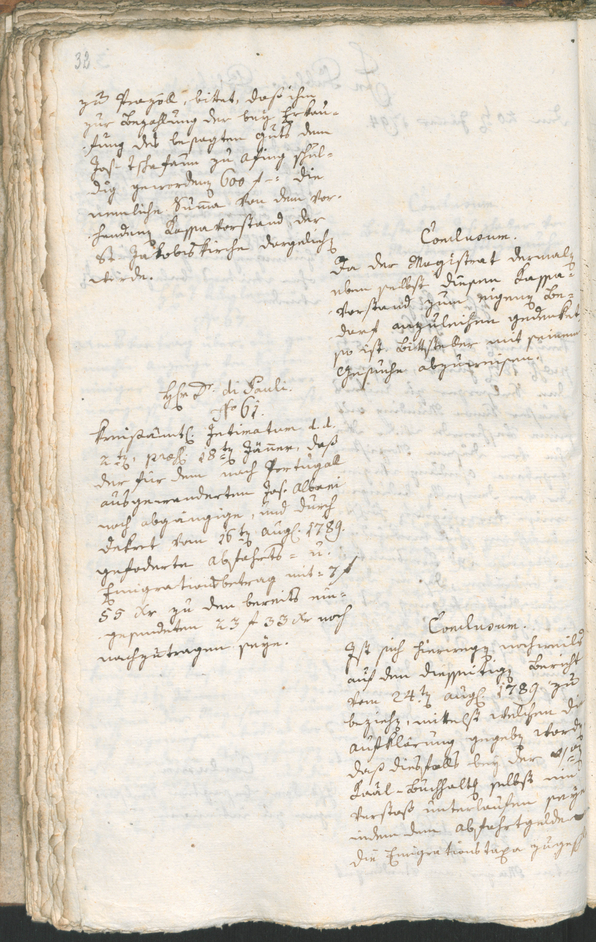 32.
zu Prazöll, bittet, daß ihm
zur Bezahlung der bey Erkau-
fung des besagten Guts dem
Jos. Tschafaun zu Afing schul-
dig gewordenen 600 f.: die
nemliche Summa von dem vor-
handenen Kassavorstand der
St. Jakobskirche dargeliehen
werde.
Conclusum.
Da der Magistrat dermalen
eben selbst diesen Kassa-
Vorstand zum eigenen Be-
darf anzuleihen gedenket
so ist Bittsteller mit seinem
Gesuche abzuweisen.
Herr D. di Pauli.
No 61.
Kreisämtl. Intimatum d. d.
2ten, präs. 18ten Jänner, daß
der für den nach Portugall
ausgewanderten Jos. Albrei
noch abgängige, und durch
Dekret vom 16ten Aug. 1789
geforderte Abfahrts- u.
Emigrationsbetrag mit 7 f
55 xr zu den bereits ein-
gesendeten 23 f 33 xr noch
nachzutragen seye.
Conclusum.
Ist sich hierwegen nochmals
auf den diesseitigen Bericht
vom 24ten Aug. 1789 zu
beziehen, mittelst welchen die
Aufklärung gegeben worden
daß diesfalls bey der
Kaal-Buchhaltg selbst ein
Verstoß unterlaufen seye
indem dem Abfahrtgelde
die Emigrationstaxa